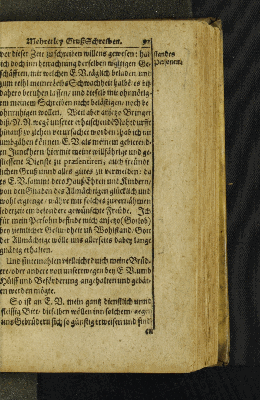 Mehrerley Gruß Schreiben. 91
vor dieser Zeit zuschreiben willens gewesen: hab
ich doch inn betrachtung derselben wichtigen Ge-
schäfften, mit welchen E. V. täglich beladen und
zum theil meiner Schwachheit halben biß
dahero beruhen lassen/ und dieselb mit
meinem Schreiben nicht belästigen/ noch be
unruhigen wöllen. Weil aber zeiger Bringer
diß N. N. wegen unserer erheischenden Nohtdurfft
hinauß zu ziehen verursachet worden/ hab ich nit
umbgehen können E. V. als meinem gebieten-
den Junckhern hiermit meine willfährige und ge-
fliessene Dienste zu præsentiren/ auch freund-
lichen Gruß unnd alles gutes zu vermelden: da
es E. V. sammt dero HaußEhren und Kindern/
von den Gnaden des Allmächtigen glücklich und
wohl ergienge/ währe mir solches zuvernähmen
jederzeit ein besondere gewünschte Freude. Ich
für mein Person befinde mich anjetzo (Gottlob)
bey ziemlicher Gesundheit und Wohlstand: Gott
der Allmächtige wölle uns allerseits dabey lange
gnädig erhalten.
Und sintemahlen vielleicht durch meine Brüd-
ere/ oder andere von unsert wegen bey E. V. umb
Hülff und Befürderung angehalten und gebät-
ten werden möchte.
So ist an E. V. mein gantz dienstlich unnd
fleissig Bitt/ dieselben wöllen inn solchem gegen
uns Gebrüdern sich so günstig erweisen und find-
en
standes
Personen.